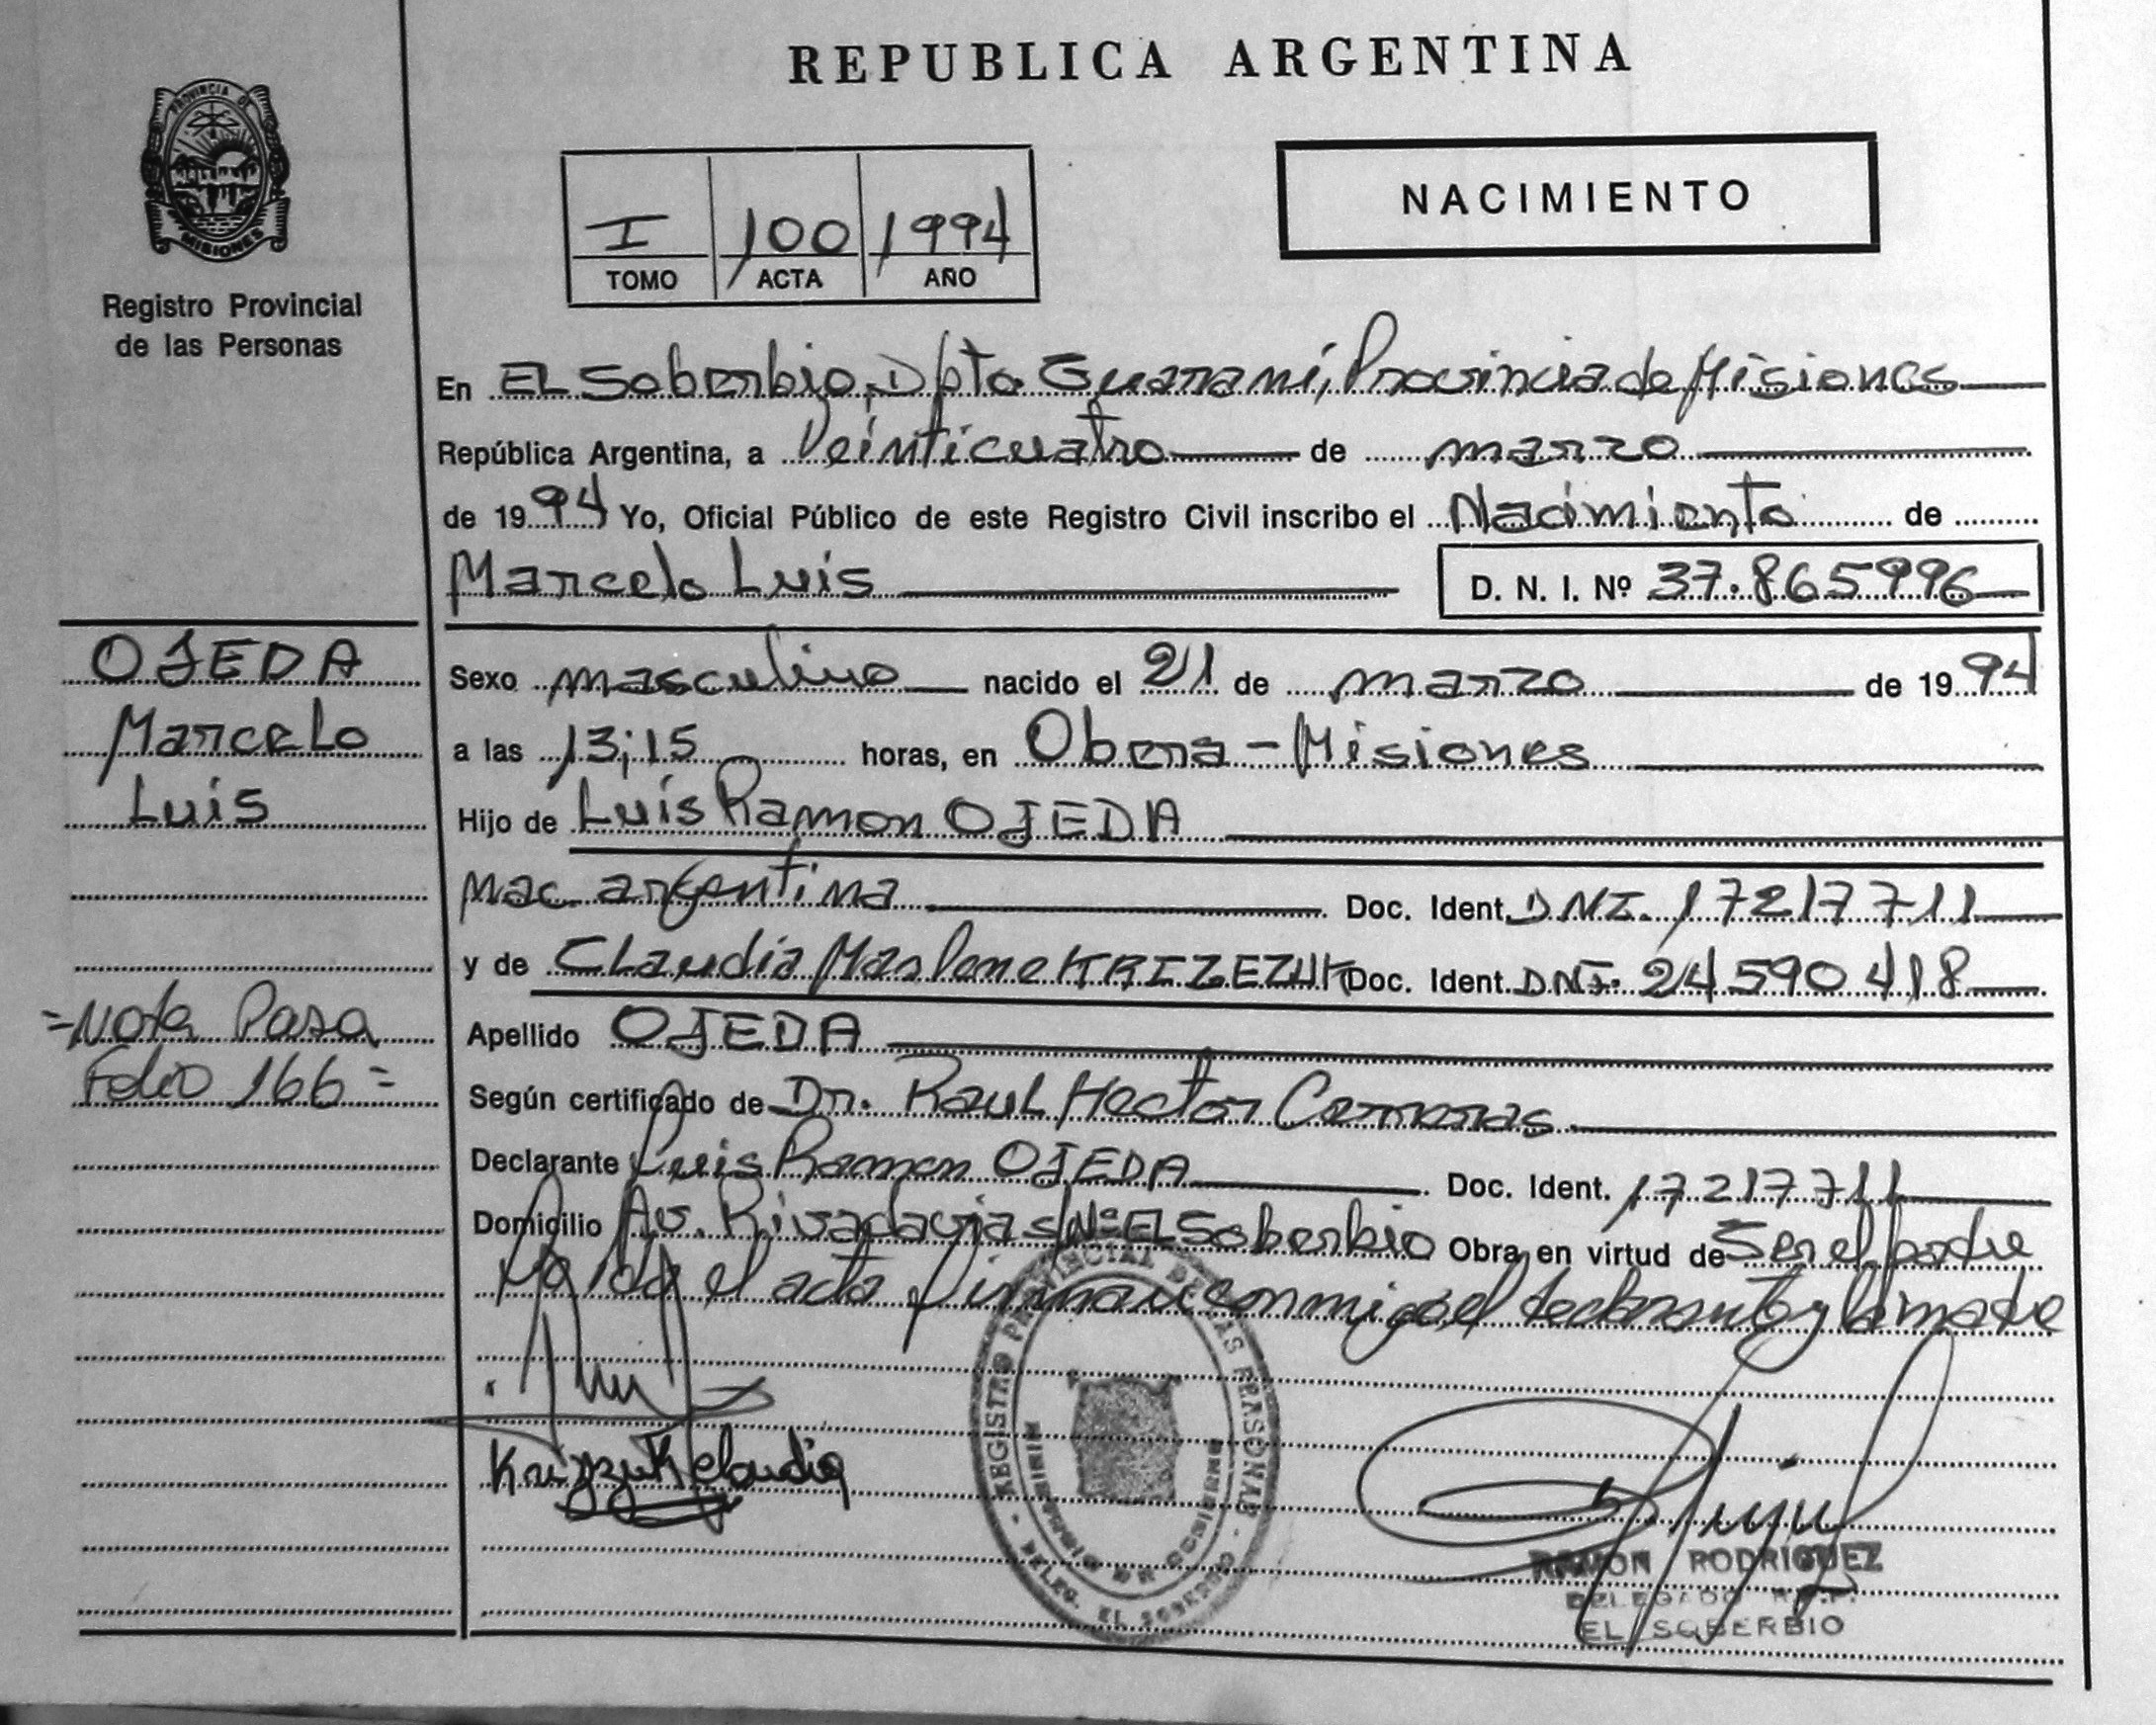 REPUBLICA ARGENTINA
PROVINCIA DE
MISIONES
Registro Provincial
de las Personas
I 100 1994
TOMO ACTA AÑO
NACIMIENTO
En EL Soberbio, Dpto. Guaraní, Provincia de Misiones
República Argentina, a Veinticuatro de marzo
de 1994 Yo, Oficial Público de este Registro Civil inscribo el Nacimiento de
Marcelo Luis D. N. I. Nº 37.865996
OJEDA
Marcelo
Luis
=Nota Pasa
Folio 166=
Sexo masculino nacido el 21 de marzo de 1994
a las 13;15 horas, en Obera - Misiones
Hijo de Luis Ramon OJEDA
Nac. argentina Doc. Ident. DNI. 17217711
y de Claudia Marlene KRIZEZUK Doc. Ident. DNI. 24590418
Apellido OJEDA
Según certificado de Dr. Raul Hector
Declarante Luis Ramon OJEDA Doc. Ident. 17217711
Domicilio Av. Rivadavia s/Nº EL Soberbio Obra en virtud de Ser el padre
Leida el acta firman conmigo, el declarante y la madre
Claudia
REGISTRO PROVINCIAL DE LAS PERSONAS
DELEG. EL SOBERBIO
RAMON RODRIGUEZ
DELEGADO R.P.P.
EL SOBERBIO